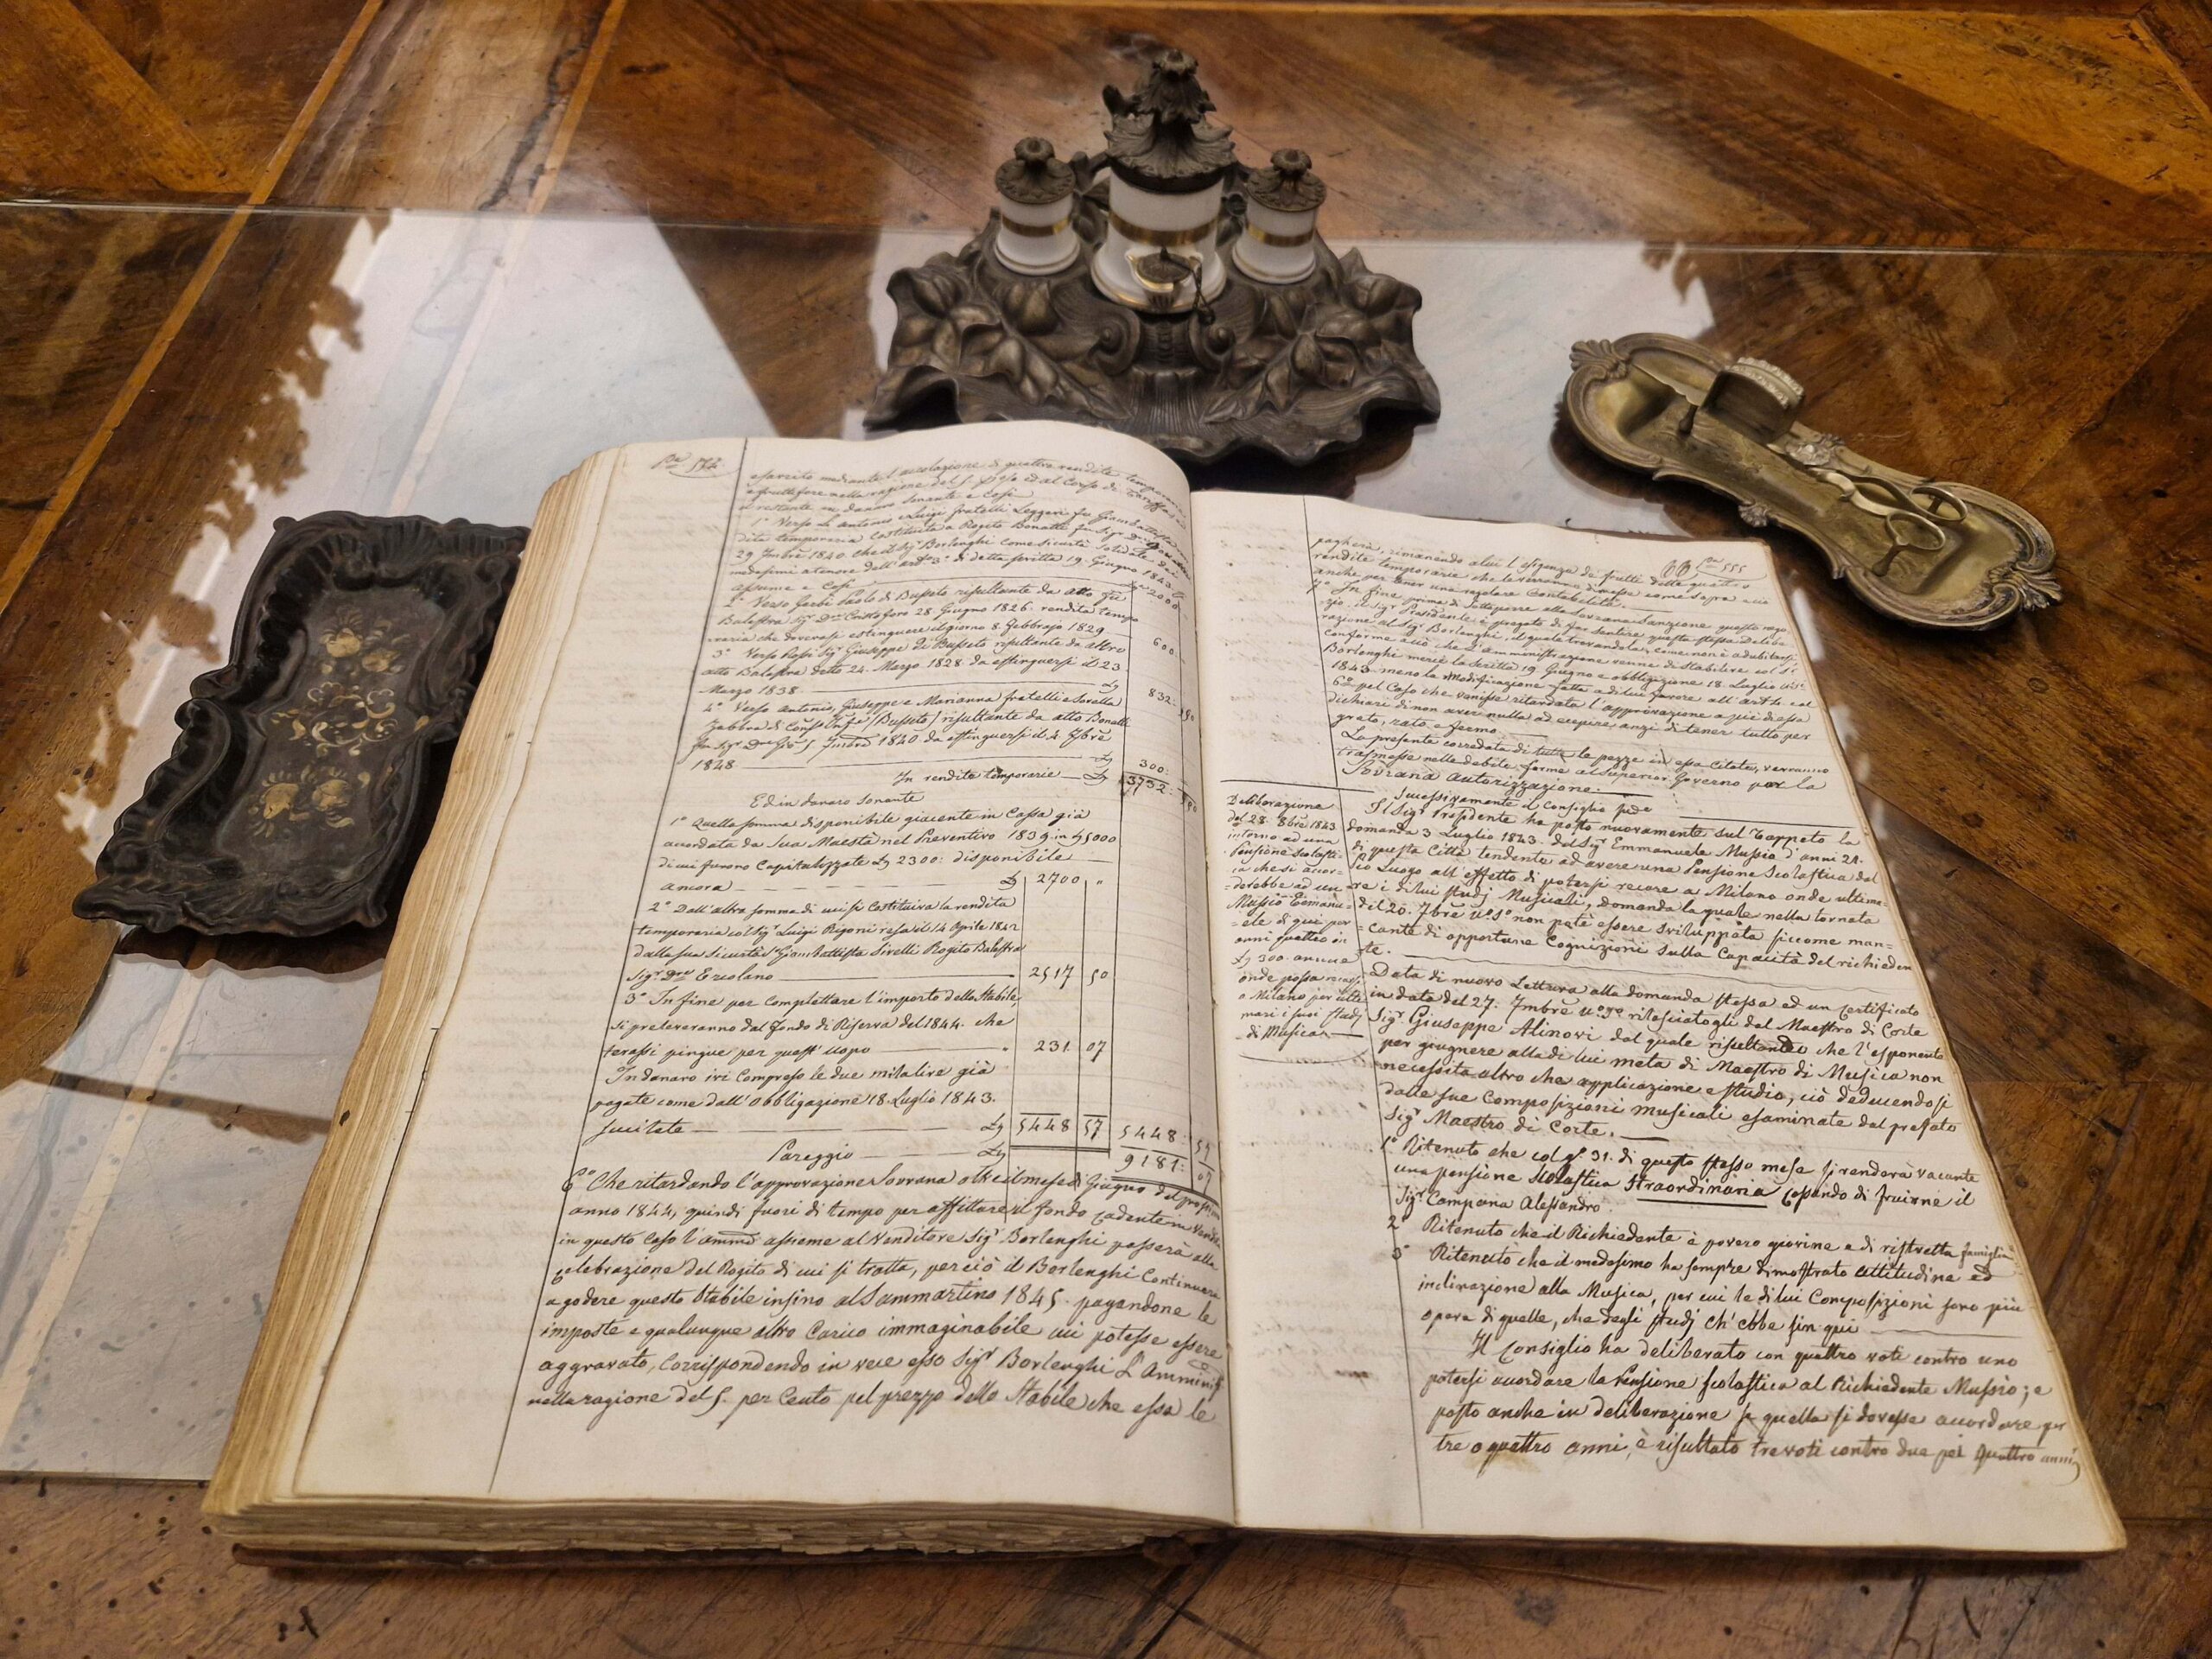 esercito mediante l'accolazione di quattro rendite temporarie
e fruttifere nella ragione del 5. p%o ed al Corso di Tariffa
il restante in danaro sonante e Così
1° Verso li Antonio e Luigi fratelli Leggeri fu Giambattista
dita temporaria Costituita a Rogito Bonatti fu Sigr Dre
29 9mbre 1840. che il Sigr Borlenghi come sicurtà solidale dei
medesimi a tenore dell'artº 3° di detta scritta 19. Giugno 1843
assume e Così 2000
2° Verso Paolo di Busseto risultante da atto
Balestra Sigr Dre Cristoforo 28 Giugno 1826. rendita tempo
raria che dovevasi estinguere il giorno 8. Febbrajo 1829 600:
3° Verso Rossi Sigr Giuseppe di Busseto risultante da altro
atto Balestra detto 24. Marzo 1828. da estinguersi il 23
Marzo 1838 832:
4° Verso Antonio, Giuseppe e Marianna fratelli e Sorella
/Busseto/ risultante da atto Bonatti
fu Sigr Dre 1840 da estinguersi il 4. 7bre
1848 300:
In rendite temporarie 3732:
Ed in danaro sonante
1° Quella somma disponibile giacente in Cassa già
accordata da Sua Maestà nel Preventivo 1839 in 5000
di cui furono Capitalizzate 2300: disponibile
ancora 2700 "
2° Dall'altra somma di cui si Costituiva la rendita
temporaria col Sigr Luigi Rigoni resa il 14 Aprile 1842
dalla sua sicurtà Sr Giambattista Sivelli Rogito Balestra
Sigr Dre Ercolano 2517 50
3° In fine per complettare l'importo dello Stabile
si preleveranno dal fondo di Riserva del 1844. che
farassi pingue per quest'uopo 231 07
In danaro ivi Compreso le due mila lire già
pagate come dall'Obbligazione 18. Luglio 1843.
succitata 5448 57 5448: 57
Pareggio 9181: 07
6° Che ritardando l'approvazione Sovrana oltre il mese di Giugno del prossimo
anno 1844, quindi fuori di tempo per affittare il fondo cadente in vendita
in questo Caso l'ammne assieme al Venditore Sigr Borlenghi passerà alla
celebrazione del Rogito di cui si tratta, perciò il Borlenghi Continuerà
a godere questo Stabile insino al Sammartino 1845. pagandone le
imposte e qualunque altro Carico immaginabile cui potesse essere
aggravato, Corrispondendo in vece esso Sigr Borlenghi L'Amminis
nella ragione del 5. per Cento pel prezzo dello Stabile che essa le
555
pagherà, rimanendo a lui l'esigenza de' frutti delle quattro
rendite temporarie che le verranno dimesse come sopra e ciò
anche per tener una regolare Contabilità.
7° In fine prima di sottoporre alla Sovrana Sanzione questo nego
zio, il Sigr Presidente è pregato di far sentire questa stessa Delibe
razione al Sigr Borlenghi, il quale trovandola, come non è a dubitarsi
conforme a ciò che l'amministrazione venne di stabilire col Sr
Borlenghi mercè la Scritta 19. Giugno e obbligazione 18. Luglio
1843. meno la modificazione fatta a di lui favore all'art°
6° pel Caso che venisse ritardata l'approvazione a piè di essa
dichiari di non aver nulla ad eccepire anzi di tener tutto per
grato, rato e fermo.
La presente corredata di tutte le pezze in essa citate, verranno
trasmesse nelle debite forme al Superior Governo per la
Sovrana autorizzazione.
Successivamente il Consiglio
Deliberazione
del 28. 8bre 1843
intorno ad una
Pensione Scolasti-
ca che si accor-
=derebbe ad un
Mussio Emanu=
=ele di qui per
anni quattro in
300. annue
onde possa recarsi
a Milano per ulti
mare i suoi Studj
di Musica
Il Sigr Presidente ha posto nuovamente sul tappeto la
domanda 3 Luglio 1843. del Sigr Emmanuele Mussio d'anni 21.
di questa Città tendente ad avere una Pensione Scolastica dal
Pio Luogo all'effetto di potersi recare a Milano onde ultima=
=re i di lui studj Musicali, domanda la quale nella tornata
del 20. 7bre non potè essere sviluppata siccome man=
=cante di opportune Cognizioni sulla Capacità del richieden
te.
Data di nuovo Lettura alla domanda stessa ed un Certificato
in data del 27. 7mbre rilasciatogli dal Maestro di Corte
Sigr Giuseppe Alinovi dal quale risultando che l'esponente
per giugnere alla di lui meta di Maestro di Musica non
necessita altro che applicazione e studio, ciò deducendosi
dalle sue Composizioni musicali esaminate dal prefato
Sigr Maestro di Corte.
1° Ritenuto che col g° 31. di questo stesso mese si renderà vacante
una pensione Scolastica Straordinaria cessando di fruirne il
Sigr Campana Alessandro.
2° Ritenuto che il Richiedente è povero giovine e di ristretta famiglia
3° Ritenuto che il medesimo ha sempre dimostrato attitudine ed
inclinazione alla Musica, per cui le di lui Composizioni sono più
opera di quelle, che degli studj ch'ebbe fin qui
Il Consiglio ha deliberato con quattro voti contro uno
potersi accordare la Pensione scolastica al Richiedente Mussio; e
posto anche in deliberazione se quella si dovesse accordare per
tre o quattro anni, è risultato tre voti contro due pei quattro anni